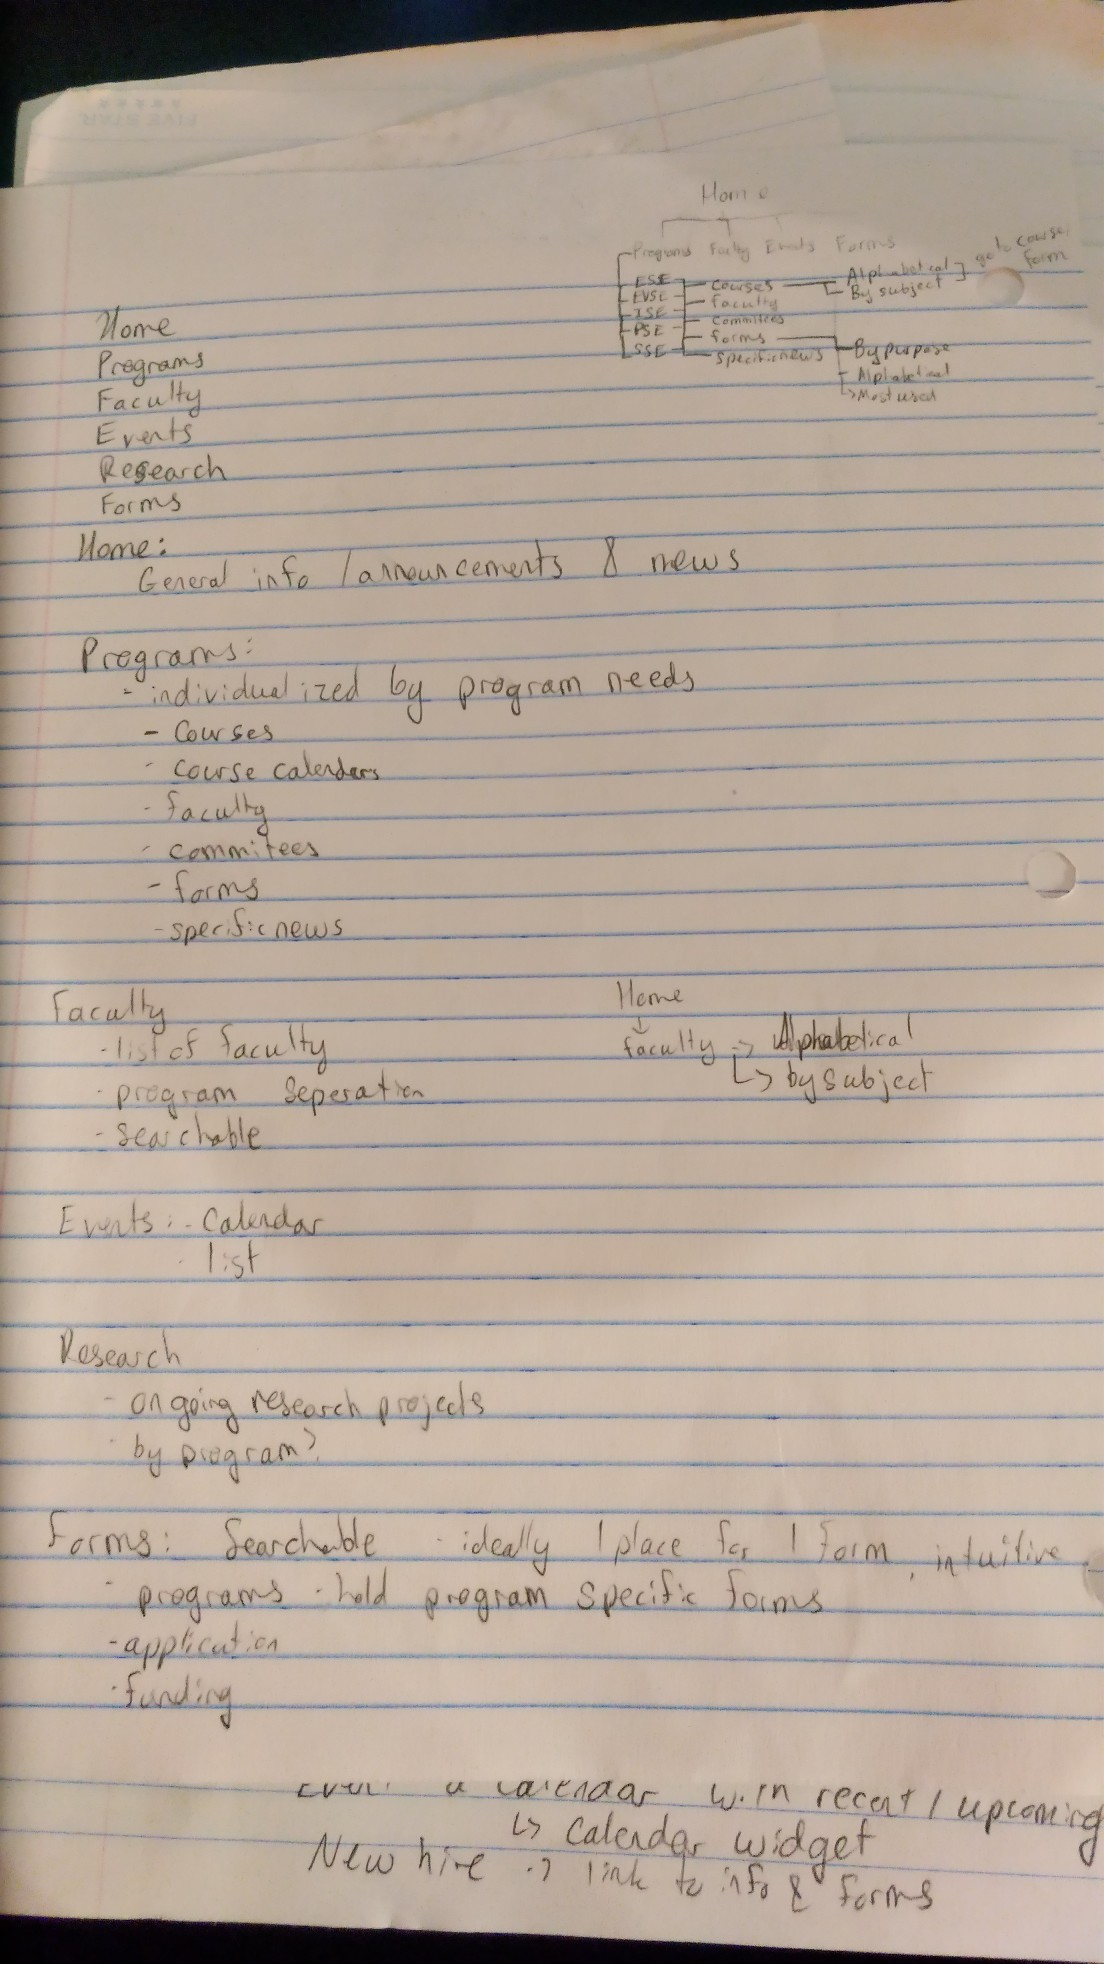 Home
Programs Faculty Events Forms
ESE
EVSE
ISE
PSE
SSE
courses
faculty
commitees
forms
specific news
Alphabetical
By subject
go to course
form
By purpose
Alphabetical
Most used
Home
Programs
Faculty
Events
Research
Forms
Home:
General info / announcements & news
Programs:
- individualized by program needs
- Courses
- course calenders
- faculty
- commitees
- forms
- specific news
Faculty
- list of faculty
- program seperation
- searchable
Home
↓
faculty -> Alphabetical
↳ by subject
Events: - Calendar
- list
Research
- ongoing research projects
- by program?
Forms: Searchable - ideally 1 place for 1 form, intuitive
- programs - hold program specific forms
- application
- funding
a calendar with recent / upcoming
↳ calendar widget
New hire -> link to info & forms